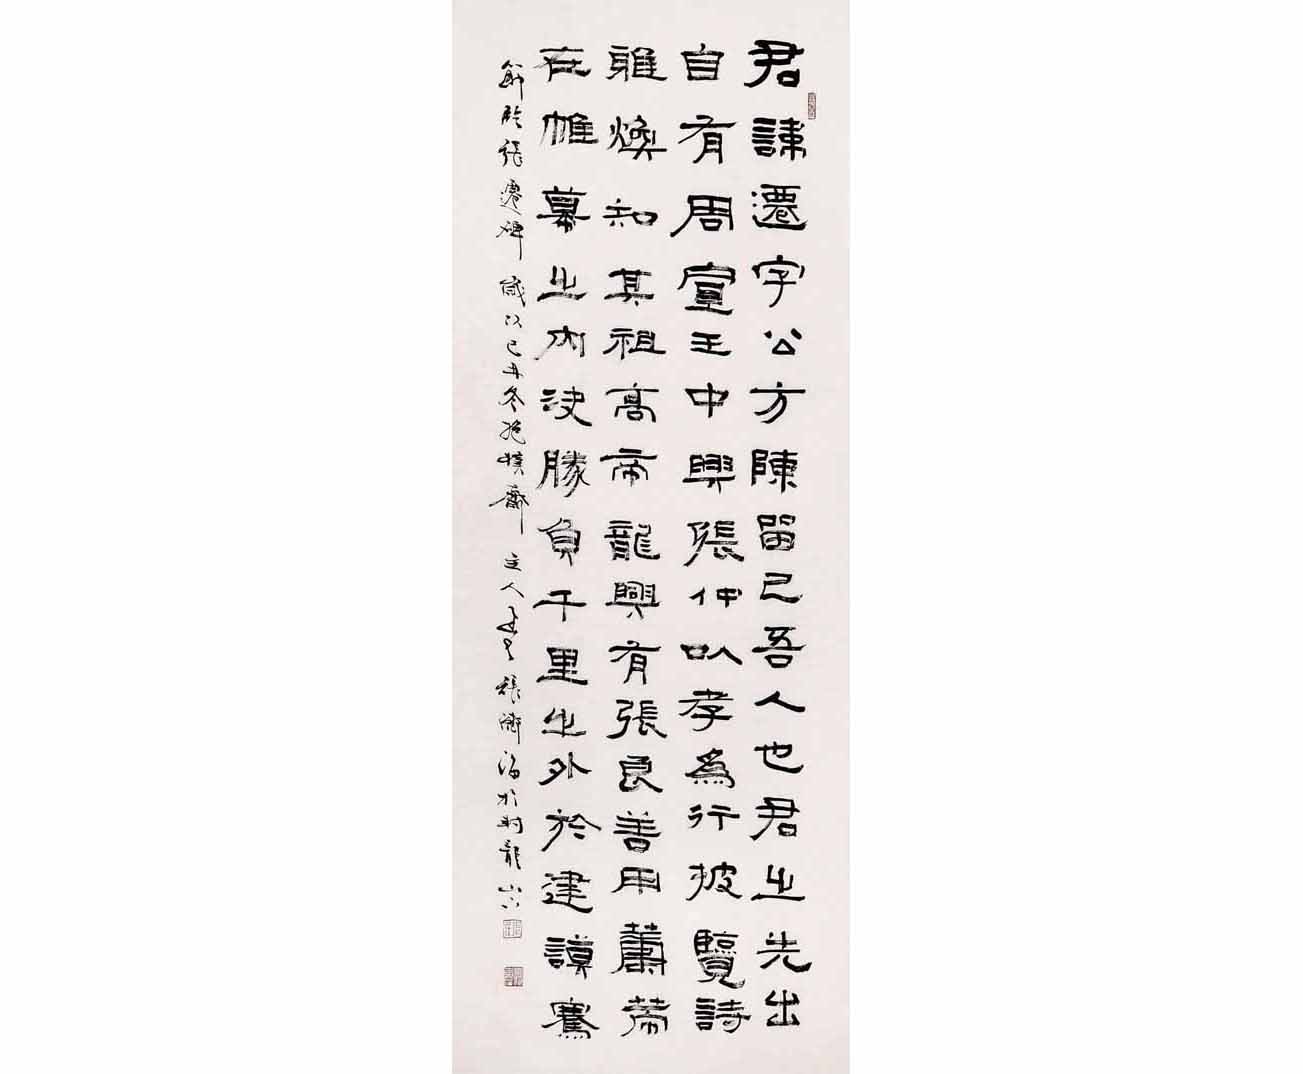 君諱遷字公方陳留己吾人也君之先出
自有周宣王中興張仲以孝為行披覽詩
雅煥知其祖高帝龍興有張良善用籌策
在帷幕之內決勝負千里之外於建謨騫
節臨張遷碑 歲次己丑冬抱樸齋主人 張 於 龍山下